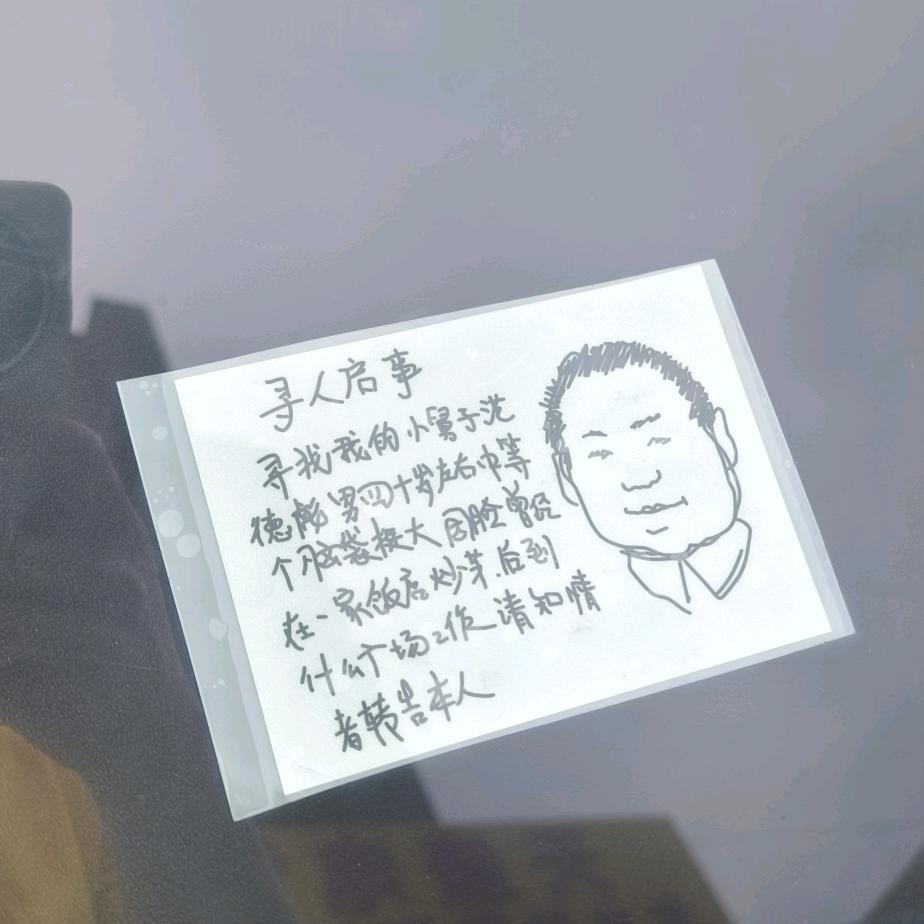 寻人启事
寻找我的小舅子沈
德彪男四十岁左右中等
个脑袋挺大圆脸曾经
在一家饭店炒菜.后到
什么广场工作请知情
者转告本人